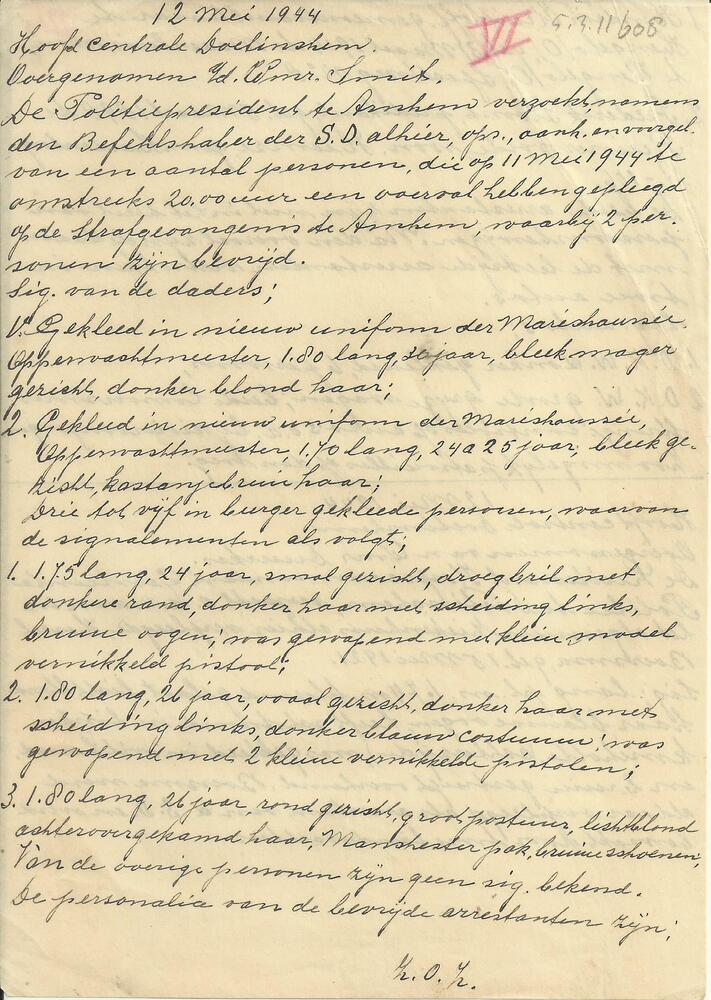 12 Mei 1944
VI 5.3.11/608
Hoofd centrale Doetinshem.
Overgenomen Smit.
De Politiepresident te Arnhem verzoekt, namens
den Befehlshaber der S.D. alhier, ops., aanh. en voorgel.
van een aantal personen, die op 11 Mei 1944 te
omstreeks 20.00 uur een overval hebben gepleegd
op de Strafgevangenis te Arnhem, waarbij 2 per-
sonen zijn bevrijd.
Sig. van de daders;
1. Gekleed in nieuw uniform der Mareshaussée.
Opperwachtmeester, 1.80 lang, jaar, bleek mager
gezicht, donker blond haar;
2. Gekleed in nieuw uniform der Mareshaussée,
Opperwachtmeester, 1.70 lang, 24 a 25 jaar, bleek ge-
zicht, kastanjebruin haar;
Drie tot vijf in burger gekleede personen, waarvan
de signalementen als volgt;
1. 1.75 lang, 24 jaar, smal gezicht, droeg bril met
donkere rand, donker haar met scheiding links,
bruine oogen; was gewapend met klein model
vernikkeld pistool;
2. 1.80 lang, 26 jaar, ovaal gezicht, donker haar met
scheiding links, donker blauw costuum; was
gewapend met 2 kleine vernikkelde pistolen;
3. 1.80 lang, 26 jaar, rond gezicht, groot postuur, lichtblond
achterovergekamd haar, Manchester pak, bruine schoenen;
Van de overige personen zijn geen sig. bekend.
De personalia van de bevrijde arrestanten zijn;
Z.O.Z.